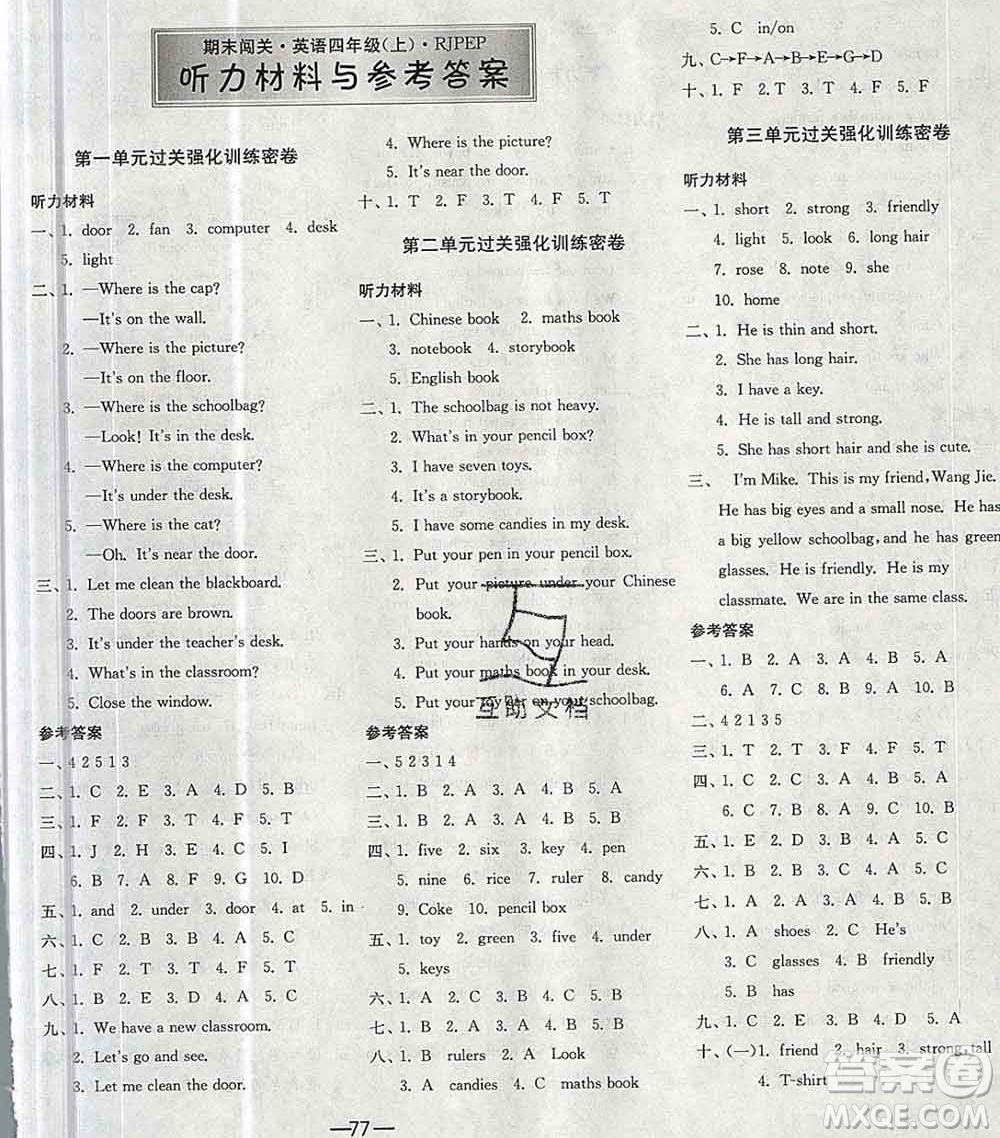 期末闯关·英语四年级(上)·RJPEP
听力材料与参考答案
第一单元过关强化训练密卷
听力材料
一、1. door 2. fan 3. computer 4. desk
5. light
二、1. —Where is the cap?
—It's on the wall.
2. —Where is the picture?
—It's on the floor.
3. —Where is the schoolbag?
—Look! It's in the desk.
4. —Where is the computer?
—It's under the desk.
5. —Where is the cat?
—Oh. It's near the door.
三、1. Let me clean the blackboard.
2. The doors are brown.
3. It's under the teacher's desk.
4. What's in the classroom?
5. Close the window.
参考答案
一、4 2 5 1 3
二、1. C 2. E 3. A 4. D 5. B
三、1. F 2. F 3. T 4. F 5. T
四、1. J 2. H 3. E 4. C 5. I
6. B 7. A 8. F 9. G 10. D
五、1. and 2. under 3. door 4. at 5. in
六、1. C 2. B 3. C 4. A 5. C
七、1. F 2. T 3. T 4. F 5. T
八、1. C 2. D 3. A 4. E 5. B
九、1. We have a new classroom.
2. Let's go and see.
3. Let me clean the door.
4. Where is the picture?
5. It's near the door.
十、1. T 2. F 3. T 4. F 5. T
第二单元过关强化训练密卷
听力材料
一、1. Chinese book 2. maths book
3. notebook 4. storybook
5. English book
二、1. The schoolbag is not heavy.
2. What's in your pencil box?
3. I have seven toys.
4. It's a storybook.
5. I have some candies in my desk.
三、1. Put your pen in your pencil box.
2. Put your picture under your Chinese
book.
3. Put your hands on your head.
4. Put your maths book in your desk.
5. Put your toy car on your schoolbag.
参考答案
一、5 2 3 1 4
二、1. B 2. A 3. A 4. B 5. B
三、1. B 2. B 3. A 4. B 5. B
四、1. five 2. six 3. key 4. pen
5. nine 6. rice 7. ruler 8. candy
9. Coke 10. pencil box
五、1. toy 2. green 3. five 4. under
5. keys
六、1. A 2. C 3. B 4. C 5. B
七、1. B 2. C 3. A 4. C 5. B
八、1. B rulers 2. A Look
3. A candies 4. C maths book
5. C in/on
九、C→F→A→B→E→G→D
十、1. F 2. T 3. T 4. F 5. F
第三单元过关强化训练密卷
听力材料
一、1. short 2. strong 3. friendly
4. light 5. look 6. long hair
7. rose 8. note 9. she
10. home
二、1. He is thin and short.
2. She has long hair.
3. I have a key.
4. He is tall and strong.
5. She has short hair and she is cute.
三、I'm Mike. This is my friend, Wang Jie.
He has big eyes and a small nose. He has
a big yellow schoolbag, and he has green
glasses. He is friendly. He is my
classmate. We are in the same class.
参考答案
一、1. B 2. A 3. A 4. B 5. A
6. A 7. A 8. B 9. A 10. B
二、4 2 1 3 5
三、1. T 2. T 3. F 4. F 5. T
四、1. C 2. C 3. A 4. B 5. A
6. C 7. B 8. A 9. C 10. B
五、1. B 2. C 3. A 4. B 5. A
六、1. C 2. B 3. B 4. B 5. B
七、1. A 2. B 3. A 4. B 5. B
八、1. A shoes 2. A He's
3. C glasses 4. B friendly
5. B has
九、1. C 2. E 3. B 4. D 5. A
十、(一)1. friend 2. hair 3. strong, tall
4. T-shirt
互助文档
—77—
答案圈
MXQE.COM